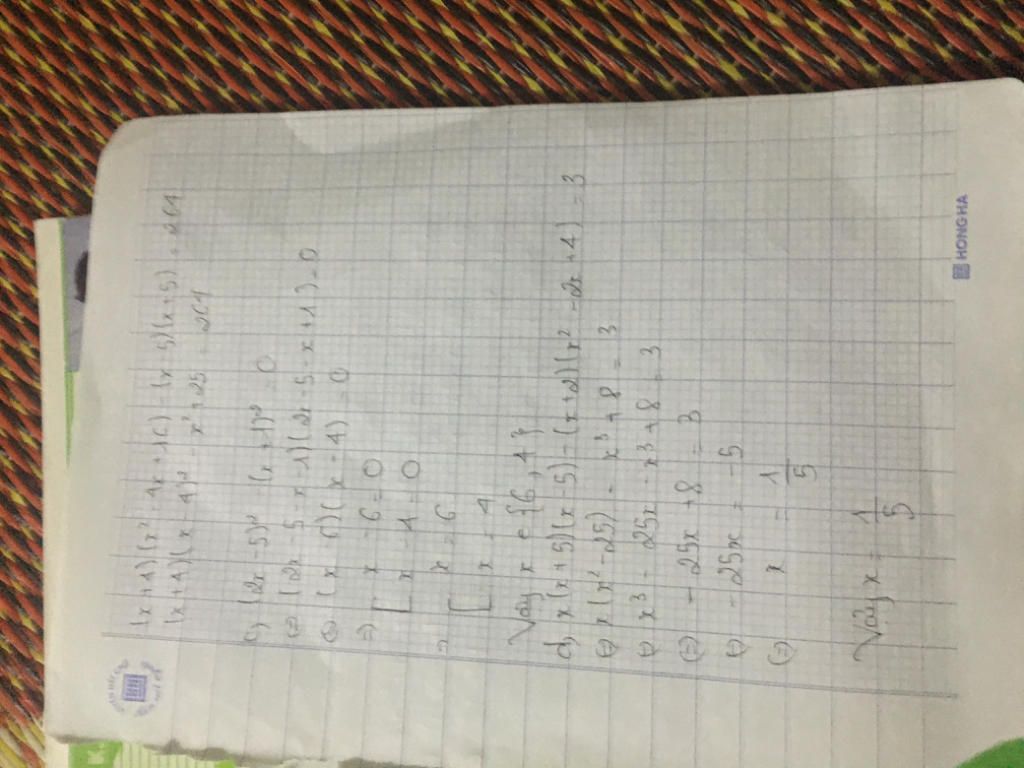 (x+4)(x² - 4x + 16) - (x - 5)(x + 5) = 264
(x+4)(x - 4)² - x² + 25 = 264
c) (2x - 5)² - (x + 1)² = 0
(=) (2x - 5 - x - 1)(2x - 5 - x + 1) = 0
(=) (x - 6)(x - 4) = 0
=> [ x - 6 = 0
x - 4 = 0
=> [ x = 6
x = 4
Vậy x ∈ {6, 4}
d) x(x+5)(x-5) - (x+2)(x² - 2x + 4) = 3
(=) x(x² - 25) - x³ + 8 = 3
(=) x³ - 25x - x³ + 8 = 3
(=) - 25x + 8 = 3
(=) - 25x = -5
(=) x = 1/5
Vậy x = 1/5
HONG HA